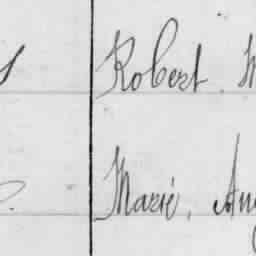 Robert
Marie, Aug